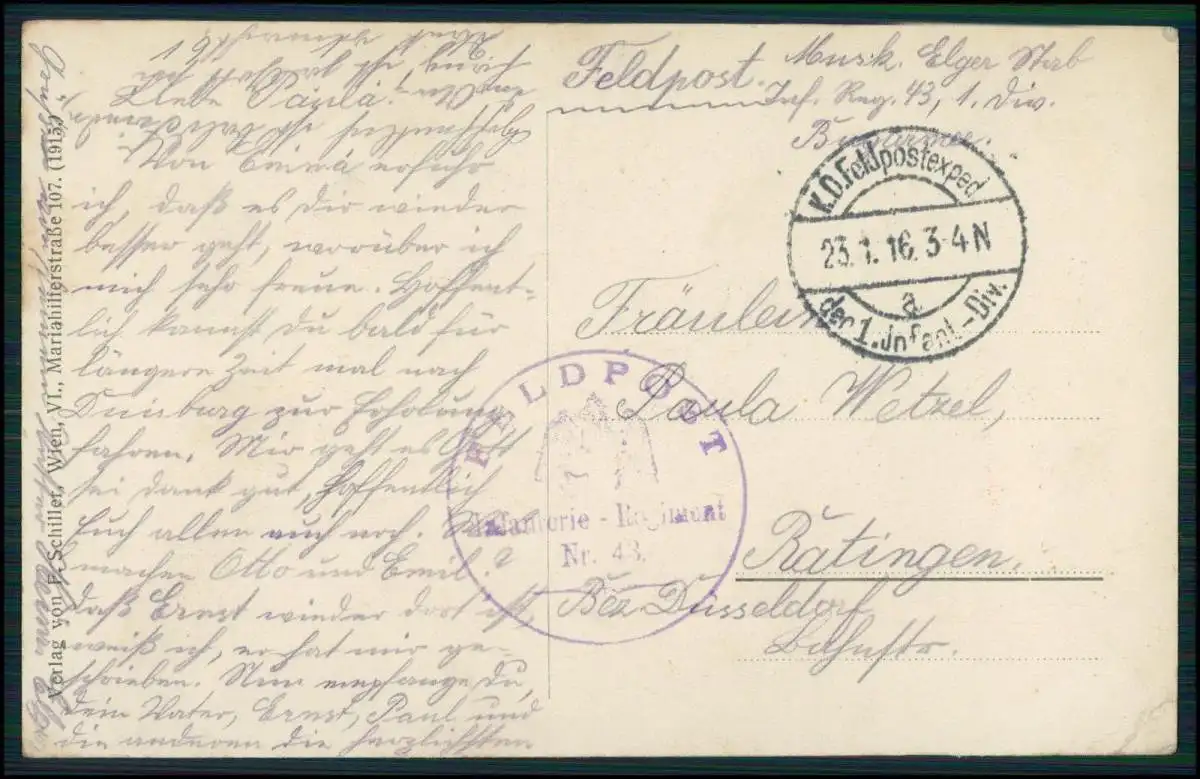 Liebe Paula!
Von Emma erfuhr
ich, daß es Dir wieder
besser geht, worüber ich
mich sehr freue. Hoffent-
lich kannst Du bald für
längere Zeit mal nach
Duisburg zur Erholung
fahren. Mir geht es Gott
sei dank gut, hoffentlich
Euch allen auch noch. Was
machen Otto und Emil?
daß Ernst wieder dort ist,
weiß ich, er hat mir ge-
schrieben. Nun empfange Du,
dein Vater, Ernst, Paul und
die anderen die herzlichsten
Verlag von F. Schiller, Wien, VI., Mariahilferstraße 107. (1915.)
Feldpost.
Musk. Elger Stab
Inf. Reg. 43, 1. Div.
K.D. Feldpostexped.
23.1.16. 3-4N
a
der 1. Infant.-Div.
Fräulein
Paula Wetzel,
Ratingen.
Bez. Düsseldorf
Bahnstr.
FELDPOST
Infanterie - Regiment
Nr. 43.